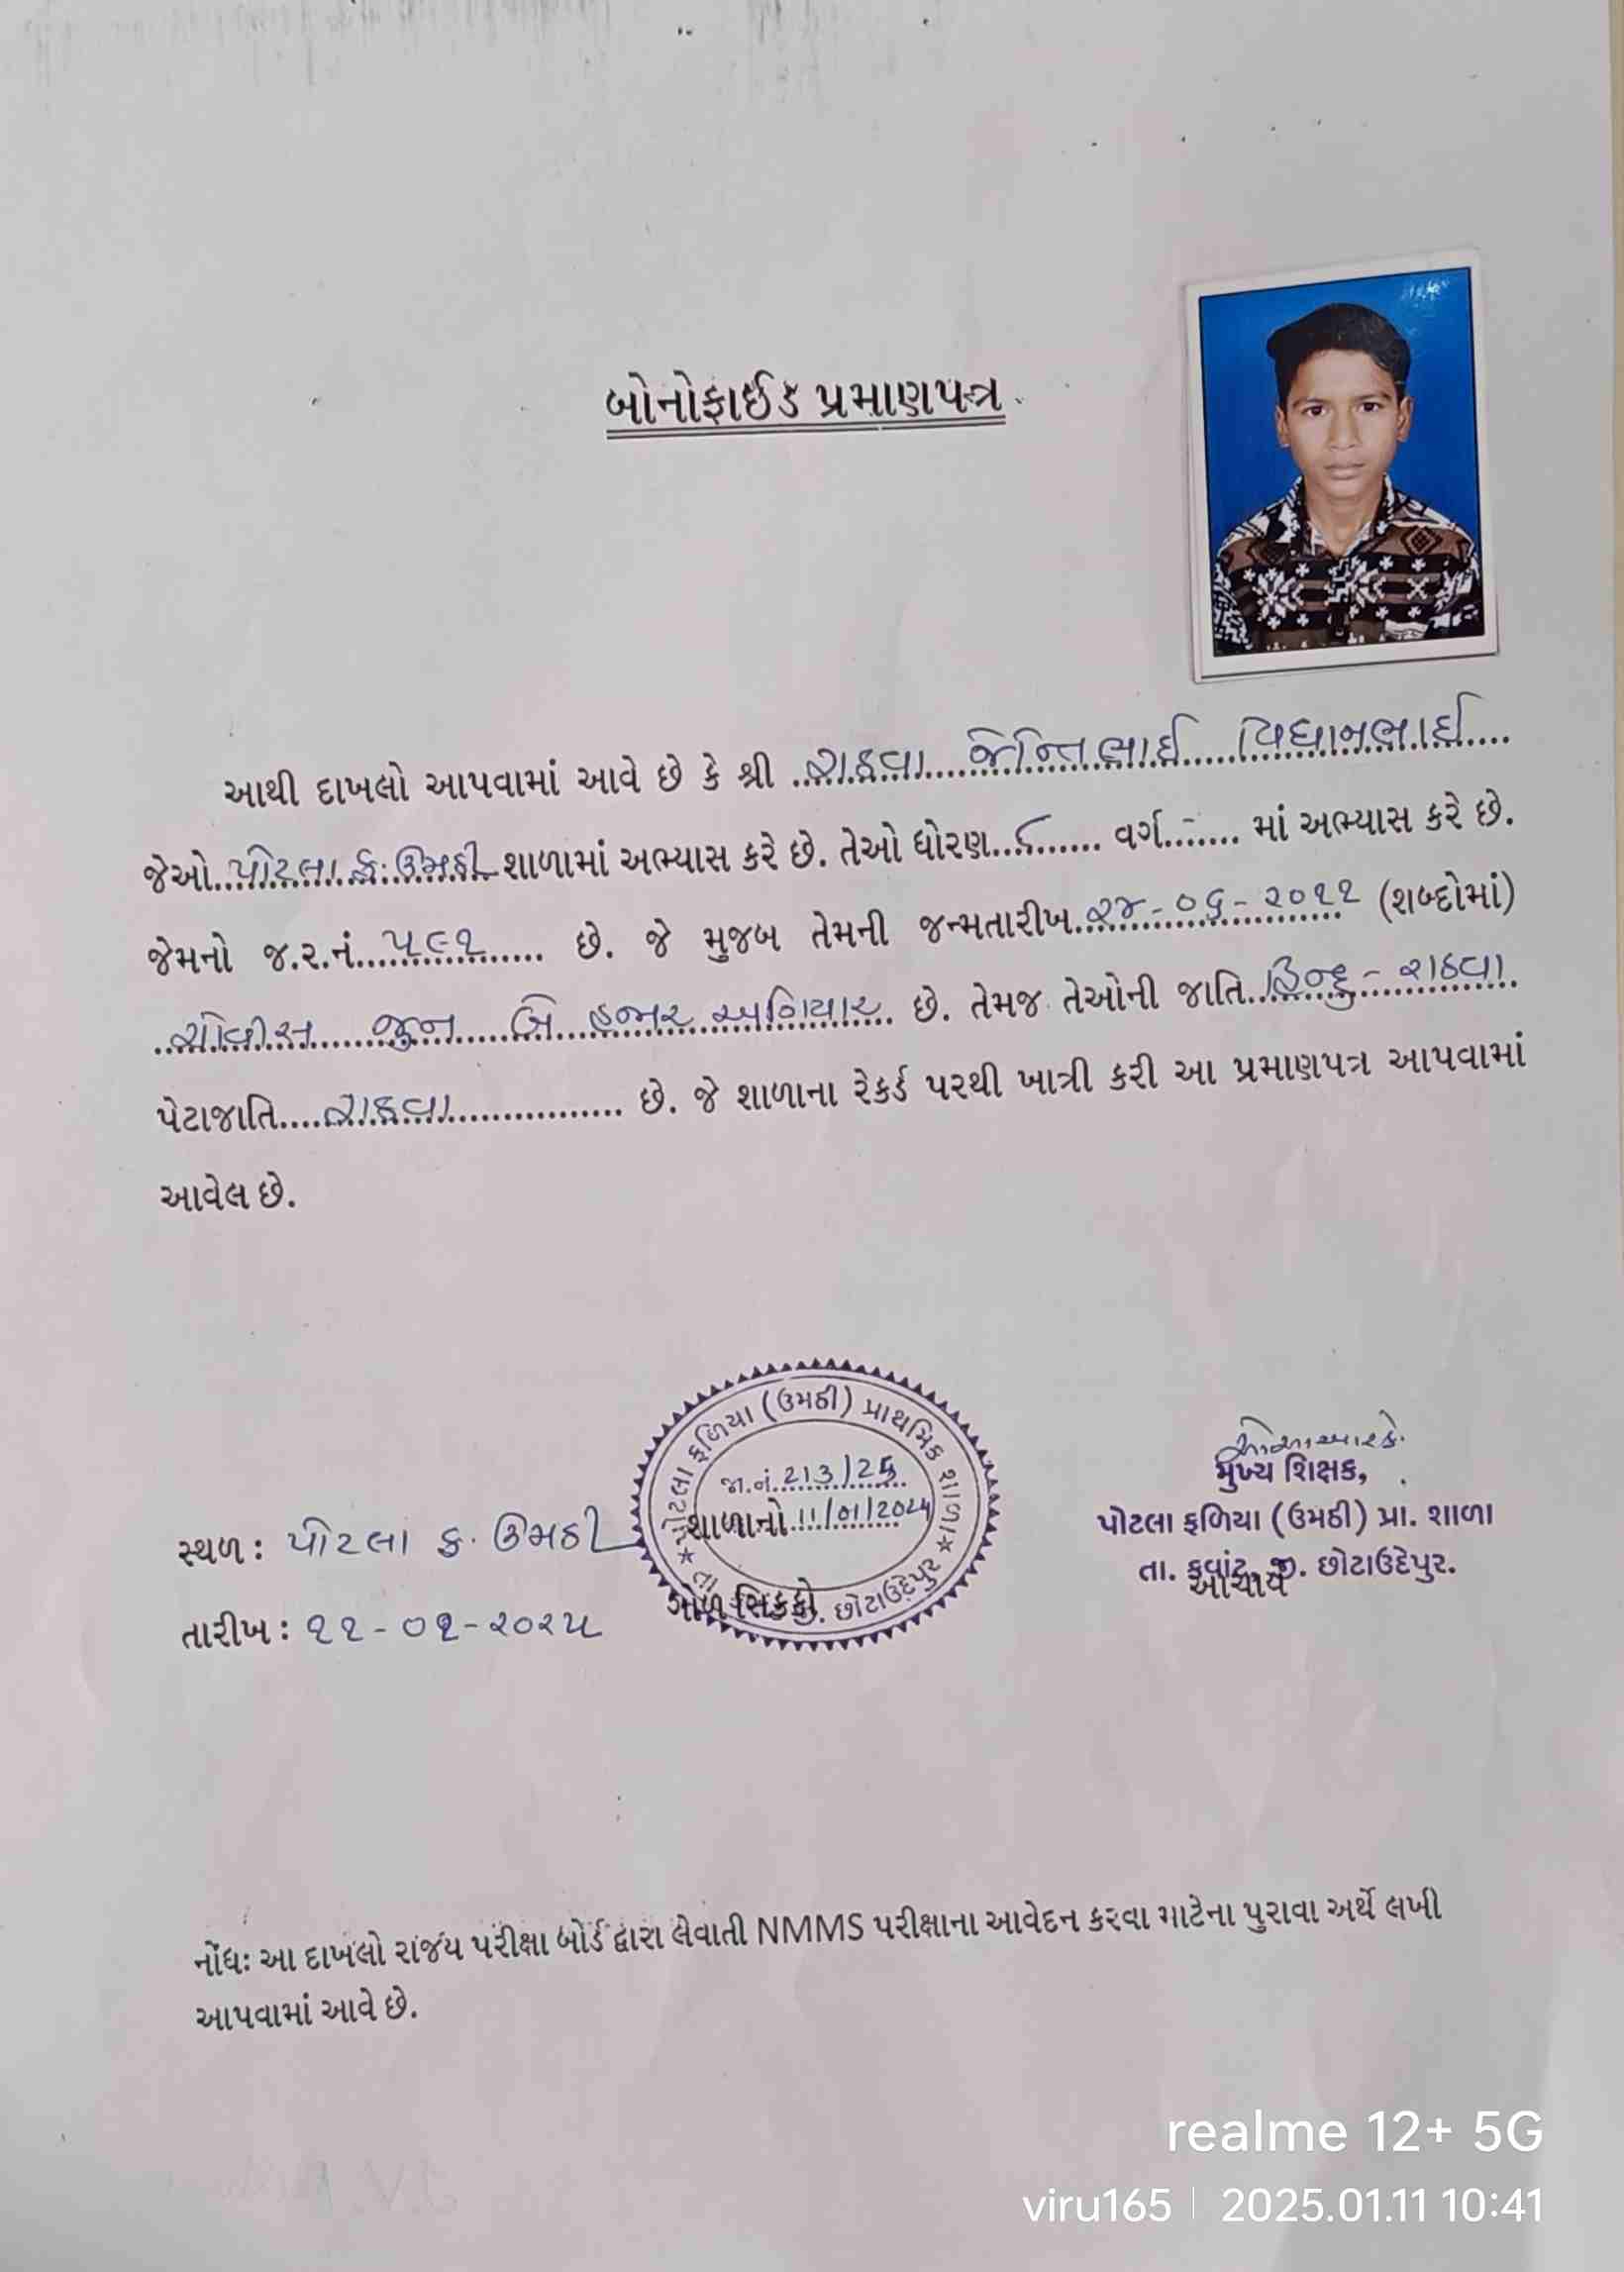 બોનોફાઈડ પ્રમાણપત્ર
આથી દાખલો આપવામાં આવે છે કે શ્રી રાઠવા જેન્તિભાઈ વિધાનભાઈ
જેઓ પોટલા ફ. ઉમઠી શાળામાં અભ્યાસ કરે છે. તેઓ ધોરણ ૮ વર્ગ - માં અભ્યાસ કરે છે.
જેમનો જ.ર.નં. ૫૯૧ છે. જે મુજબ તેમની જન્મતારીખ ૨૪-૦૬-૨૦૧૧ (શબ્દોમાં)
ચોવીસ જુન બે હજાર અગિયાર છે. તેમજ તેઓની જાતિ હિન્દુ - રાઠવા
પેટાજાતિ રાઠવા છે. જે શાળાના રેકર્ડ પરથી ખાત્રી કરી આ પ્રમાણપત્ર આપવામાં
આવેલ છે.
પોટલા ફળિયા (ઉમઠી) પ્રાથમિક શાળા
જા.નં. 213/25
શાળાનો 11/01/2025
ગોળ સિક્કો
છોટાઉદેપુર
સ્થળ : પોટલા ફ. ઉમઠી
તારીખ : ૧૧-૦૧-૨૦૨૫
મુખ્ય શિક્ષક,
પોટલા ફળિયા (ઉમઠી) પ્રા. શાળા
તા. કવાંટ, જી. છોટાઉદેપુર.
આચાર્ય
નોંધઃ આ દાખલો રાજ્ય પરીક્ષા બોર્ડ દ્વારા લેવાતી NMMS પરીક્ષાના આવેદન કરવા માટેના પુરાવા અર્થે લખી
આપવામાં આવે છે.
realme 12+ 5G
viru165 | 2025.01.11 10:41